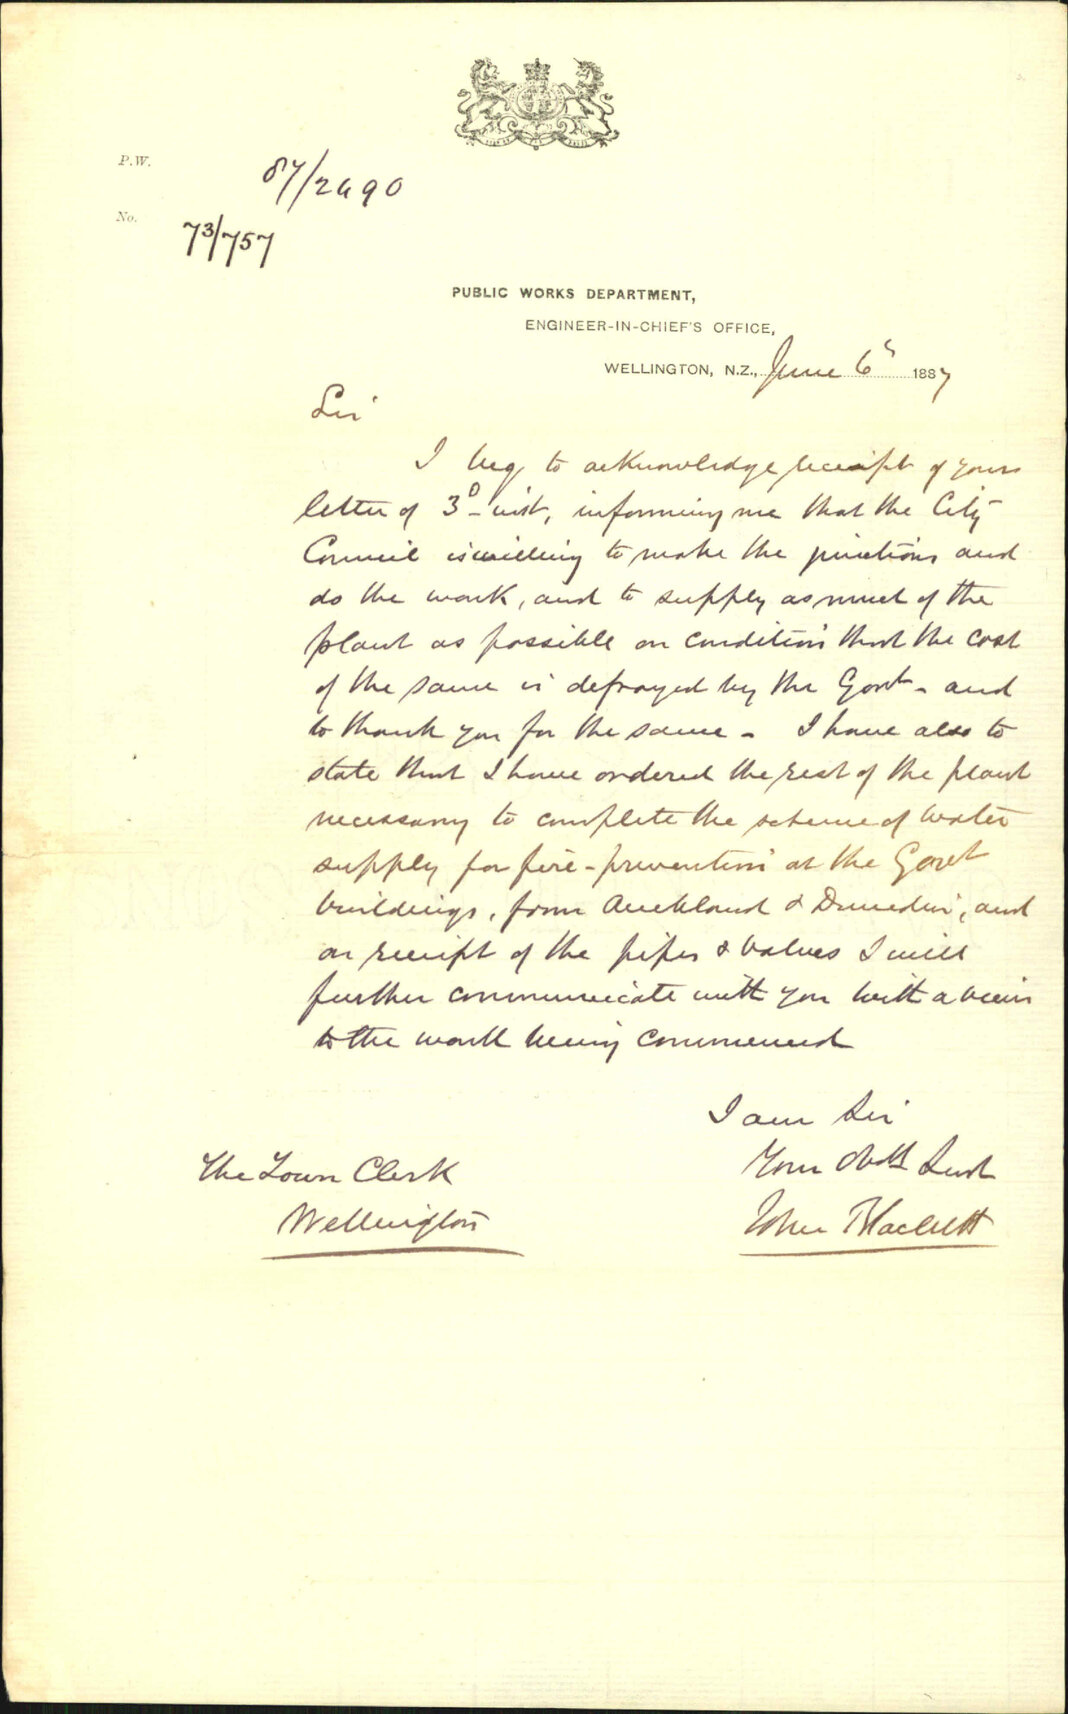 P.W.
87/2490
No.
73/757
PUBLIC WORKS DEPARTMENT,
ENGINEER-IN-CHIEF'S OFFICE,
WELLINGTON, N.Z., June 6th 1887
Sir
I beg to acknowledge receipt of your
letter of 3d inst, informing me that the City
Council is willing to make the junctions and
do the work, and to supply as much of the
plant as possible on condition that the cost
of the same is defrayed by the Govt - and
to thank you for the same - I have also to
state that I have ordered the rest of the plant
necessary to complete the scheme of water
supply for fire-prevention at the Govt
buildings, from Auckland & Dunedin, and
on receipt of the pipes & valves I will
further communicate with you with a view
to the work being commenced
I am Sir
Your Obdt Servt
John Blackett
The Town Clerk
Wellington